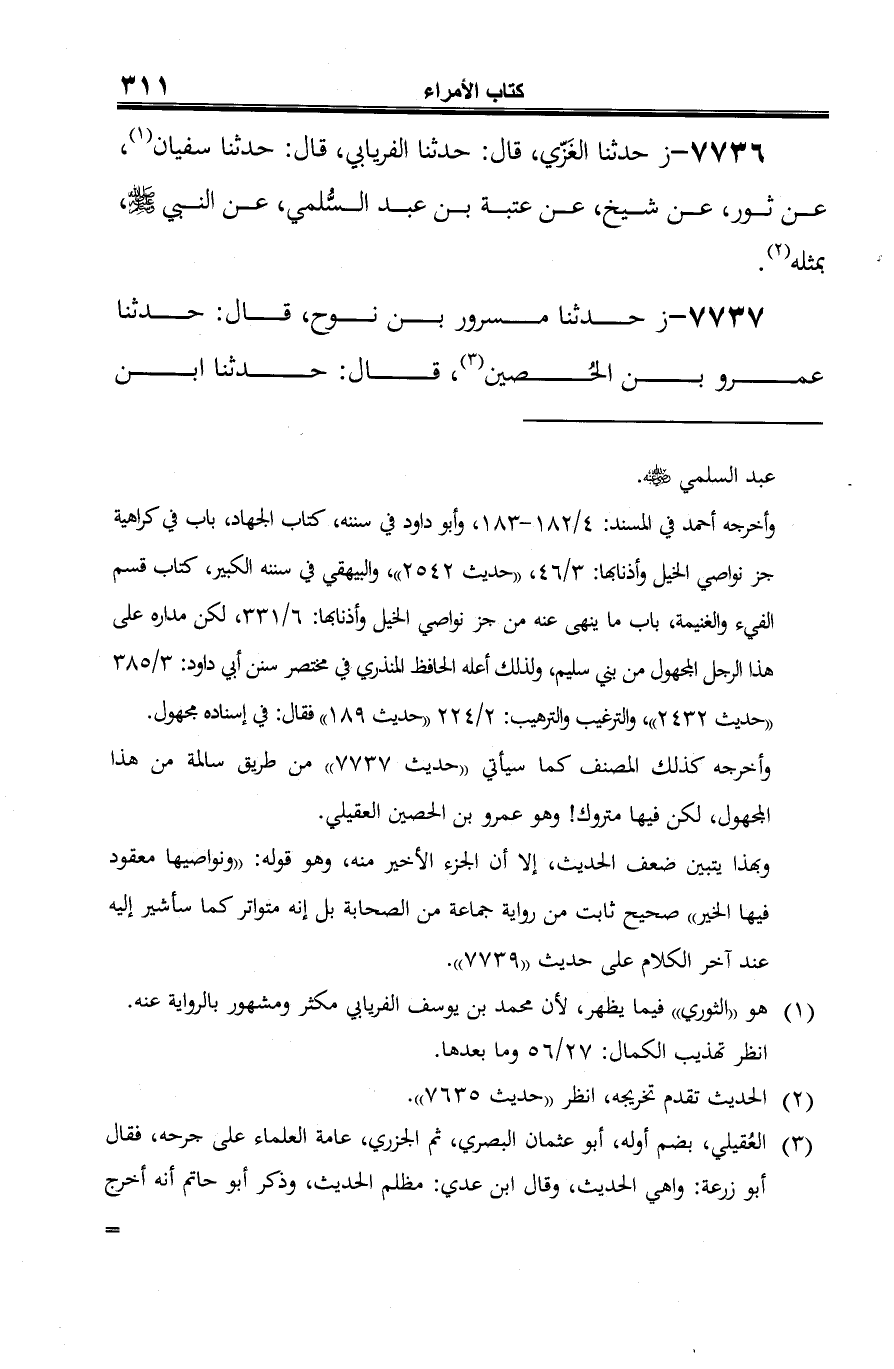 كتاب الأمراء ٣١١
٧٧٣٦–ز حدثنا الغَزّي، قال: حدثنا الفريابي، قال: حدثنا سفيان(١)،
عن ثور، عن شيخ، عن عتبة بن عبد السُّلمي، عن النبي ﷺ،
بمثله(٢).
٧٧٣٧–ز حدثنا مسرور بن نوح، قال: حدثنا
عمرو بن الحُصين(٣)، قال: حدثنا ابن
عبد السلمي رضي الله عنه.
وأخرجه أحمد في المسند: ١٨٢/٤–١٨٣، وأبو داود في سننه، كتاب الجهاد، باب في كراهية
جز نواصي الخيل وأذنابها: ٤٦/٣، ((حديث ٢٥٤٢))، والبيهقي في سننه الكبير، كتاب قسم
الفيء والغنيمة، باب ما ينهى عنه من جز نواصي الخيل وأذنابها: ٣٣١/٦، لكن مداره على
هذا الرجل المجهول من بني سليم، ولذلك أعله الحافظ المنذري في مختصر سنن أبي داود: ٣٨٥/٣
((حديث ٢٤٣٢))، والترغيب والترهيب: ٢٢٤/٢ ((حديث ١٨٩)) فقال: في إسناده مجهول.
وأخرجه كذلك المصنف كما سيأتي ((حديث ٧٧٣٧)) من طريق سالمة من هذا
المجهول، لكن فيها متروك! وهو عمرو بن الحصين العقيلي.
وبهذا يتبين ضعف الحديث، إلا أن الجزء الأخير منه، وهو قوله: ((ونواصيها معقود
فيها الخير)) صحيح ثابت من رواية جماعة من الصحابة بل إنه متواتر كما سأشير إليه
عند آخر الكلام على حديث ((٧٧٣٩)).
(١) هو ((الثوري)) فيما يظهر، لأن محمد بن يوسف الفريابي مكثر ومشهور بالرواية عنه.
انظر تهذيب الكمال: ٥٦/٢٧ وما بعدها.
(٢) الحديث تقدم تخريجه، انظر ((حديث ٧٦٣٥)).
(٣) العُقيلي، بضم أوله، أبو عثمان البصري، ثم الجزري، عامة العلماء على جرحه، فقال
أبو زرعة: واهي الحديث، وقال ابن عدي: مظلم الحديث، وذكر أبو حاتم أنه أخرج
=